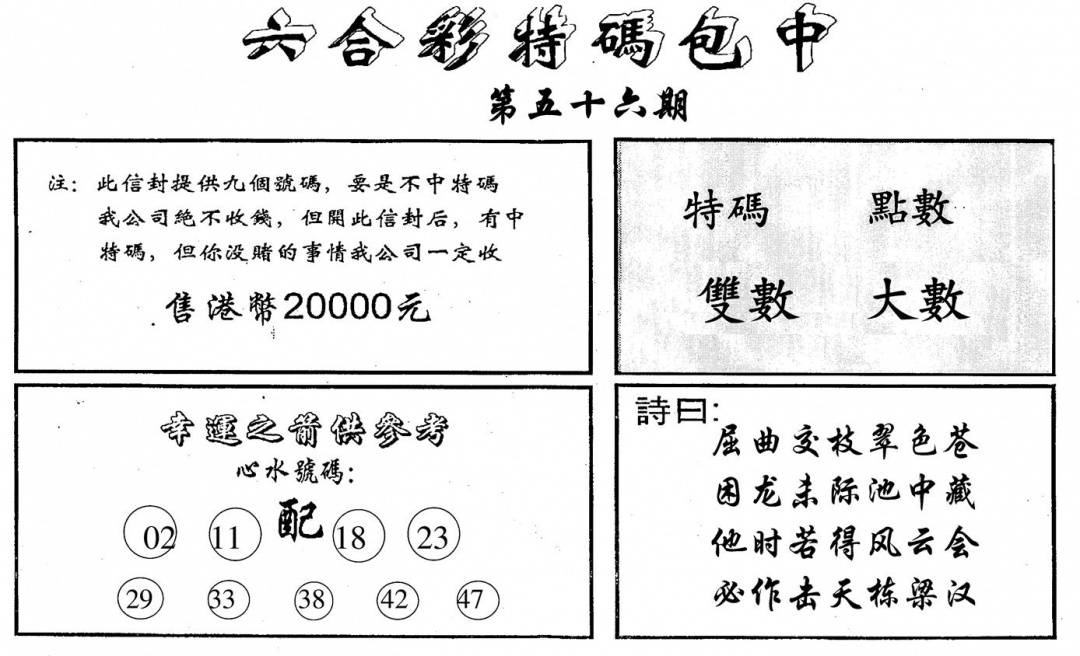 六合彩特碼包中
第五十六期
注：此信封提供九個號碼，要是不中特碼
我公司絕不收錢，但開此信封后，有中
特碼，但你没賭的事情我公司一定收
售港幣20000元
特碼 點數
雙數 大數
幸運之箭供參考
心水號碼：
配
02 11 18 23
29 33 38 42 47
詩曰：
屈曲交枝翠色苍
困龙未际池中藏
他时若得风云会
必作击天栋梁汉